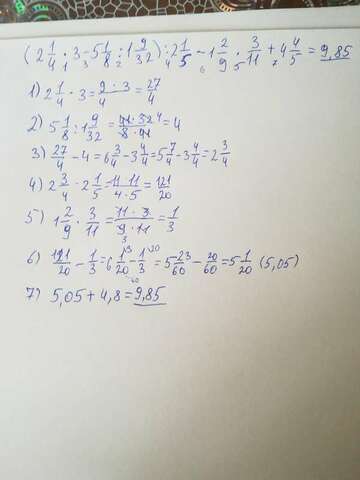 (2 1/4 · 3 - 5 1/8 : 1 9/32) : 2 1/5 - 1 2/9 · 3/11 + 4 4/5 = 9,85
1) 2 1/4 · 3 = 9·3/4 = 27/4
2) 5 1/8 : 1 9/32 = 41·32/8·41 = 4
3) 27/4 - 4 = 6 3/4 - 3 4/4 = 5 7/4 - 3 4/4 = 2 3/4
4) 2 3/4 · 2 1/5 = 11·11/4·5 = 121/20
5) 1 2/9 · 3/11 = 11·3/9·11 = 1/3
6) 121/20 - 1/3 = 6 1/20 - 1/3 = 5 23/60 - 20/60 = 5 1/20 (5,05)
7) 5,05 + 4,8 = 9,85